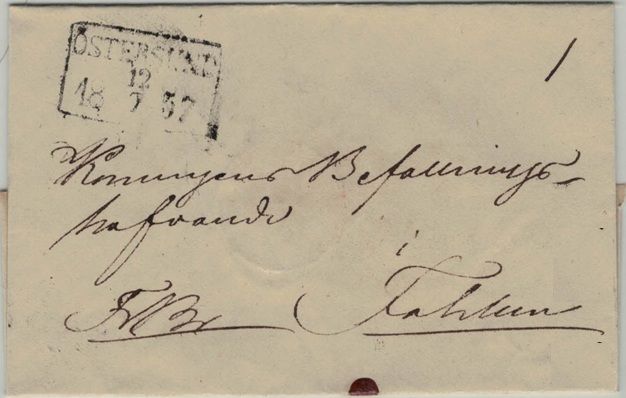 ÖSTERSUND
12
18 7 57
1
Konungens Befallnings-
hafvande
i
FrBr Fahlun